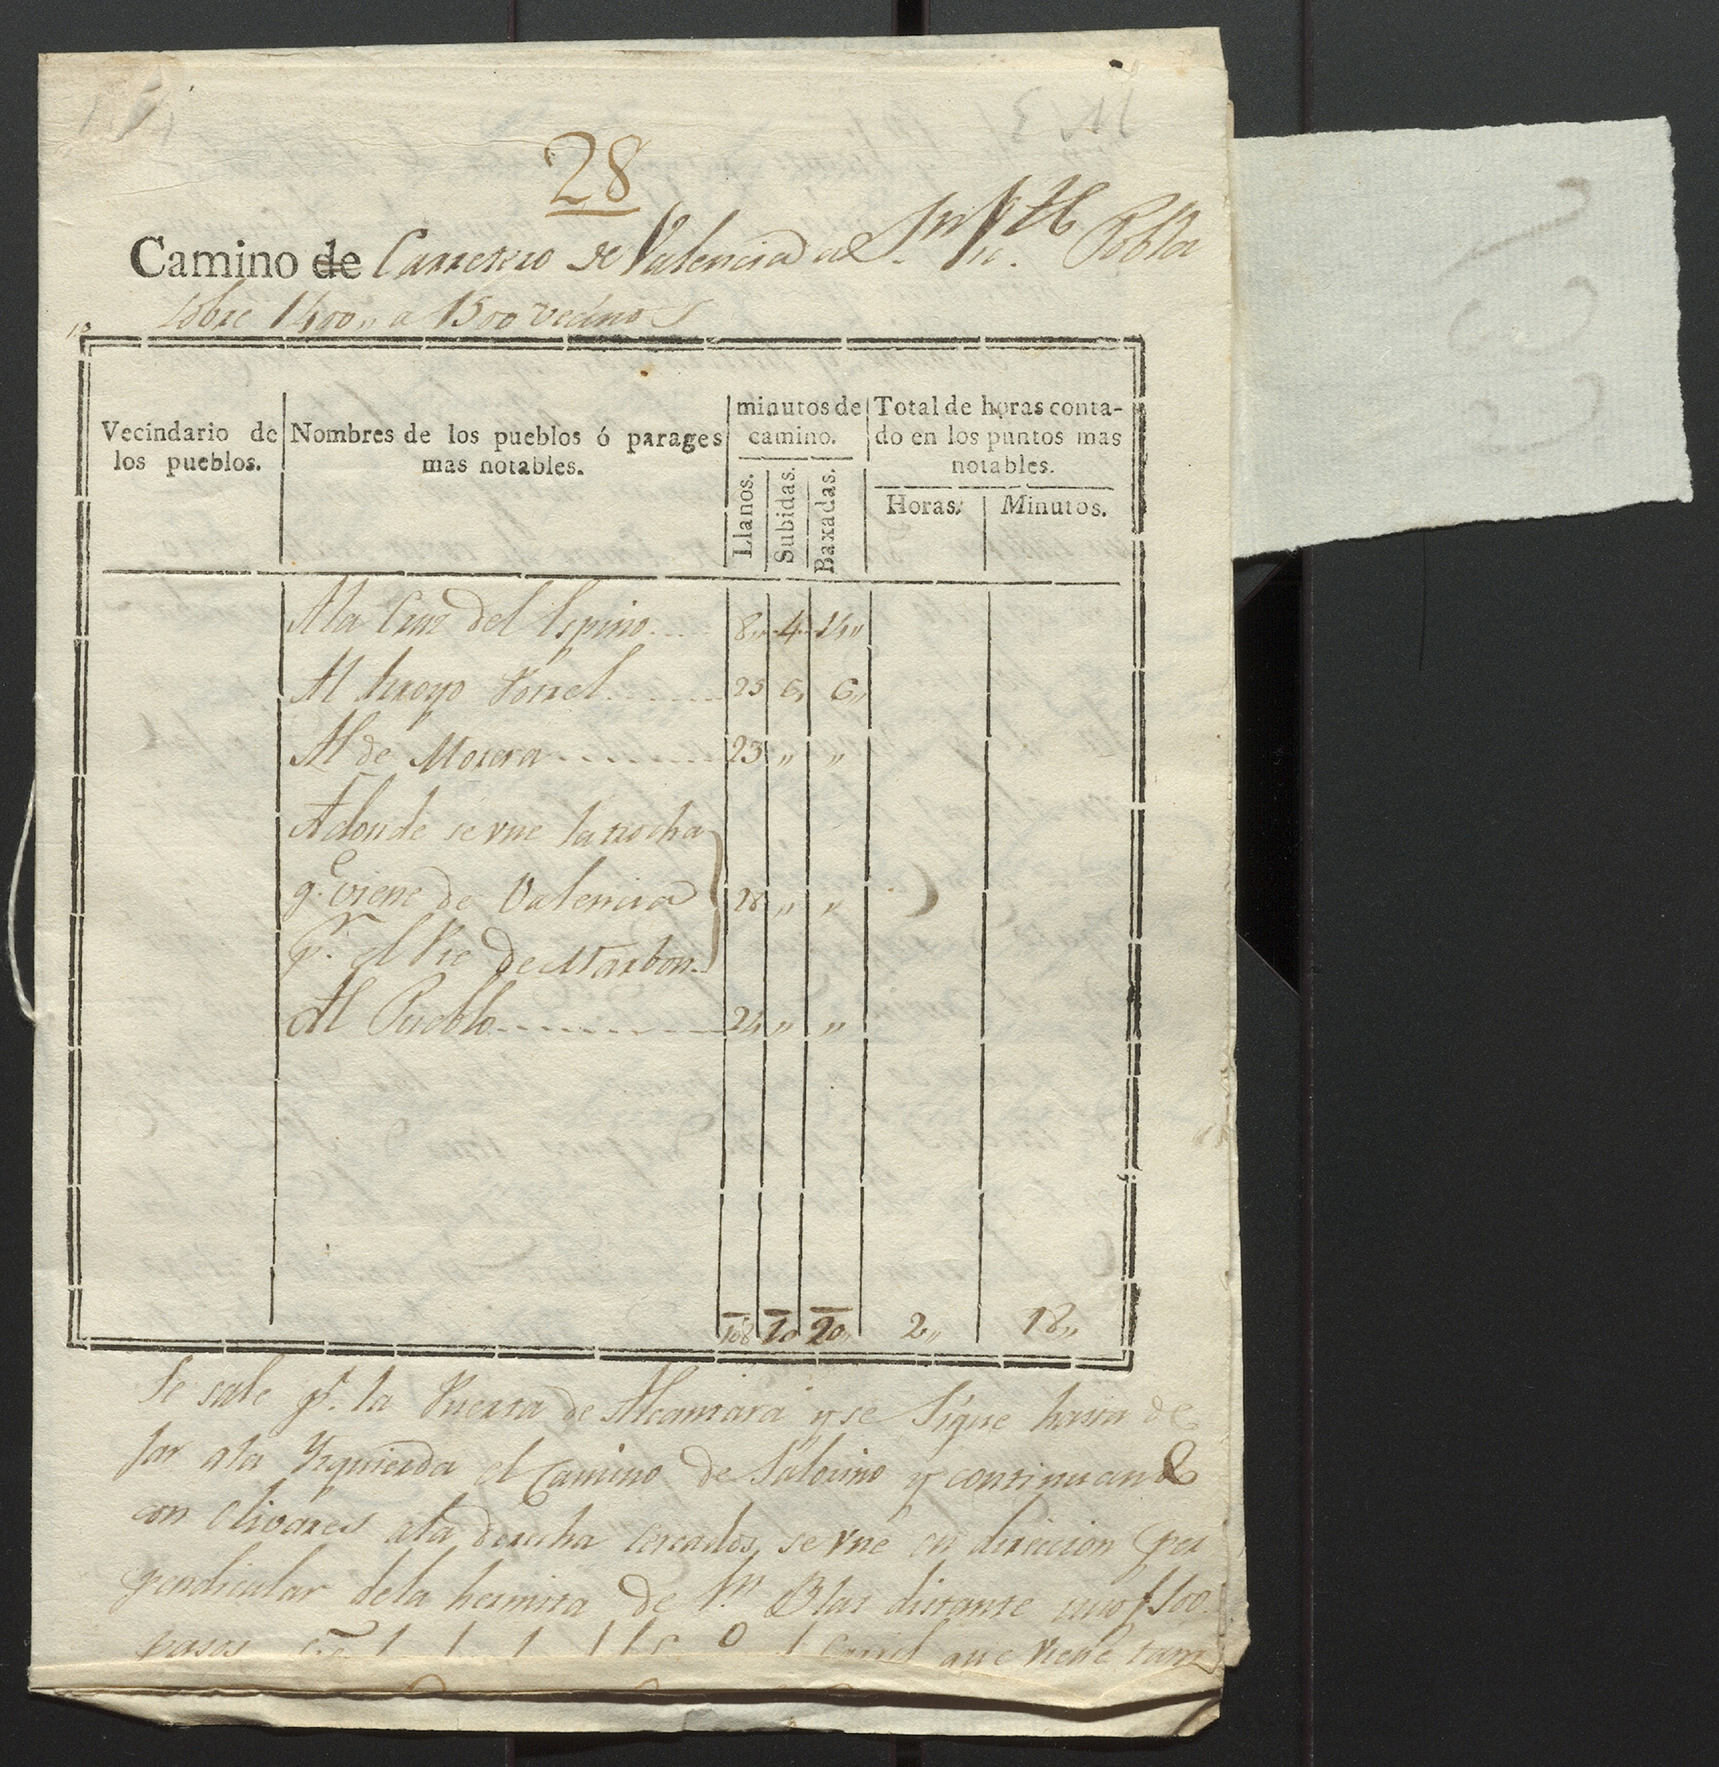 28
Camino de Carretero de Valencia a Sn. Vte. Pobla
sobre 1400,, a 1500 vecinos
Vecindario de los pueblos.
Nombres de los pueblos ó parages mas notables.
minutos de camino.
Llanos.
Subidas.
Baxadas.
Total de horas contado en los puntos mas notables.
Horas.
Minutos.
A la Cruz del Espino.... 8,, 4,, 14,,
Al Arroyo Porrel....... 25 6,, 6,,
Al de Morera.......... 23 ,, ,,
Adonde se vne la trocha
qe. viene de Valencia 28 ,, ,,
pr. el Pie de Marbon.
Al Pueblo............. 24 ,, ,,
108 10 20,, 2,, 18,,
Se sale pr. la Puerta de Alcantara y se sigue hasta de
jar a la Yzquierda el Camino de Salorino y continuando
con olivares a la derecha cercados, se vne en direccion per
pendicular de la hermita de Sn. Blas distante unos 500
pasos que viene tam